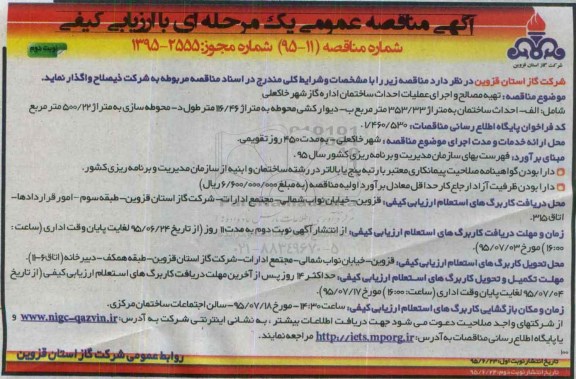 آگهی مناقصه عمومی یک مرحله ای با ارزیابی کیفی
شماره مناقصه (۱۱-۹۵) شماره مجوز: ۲۵۵۵-۱۳۹۵
نوبت دوم
شرکت گاز استان قزوین
شرکت گاز استان قزوین در نظر دارد مناقصه زیر را با مشخصات و شرایط کلی مندرج در اسناد مناقصه مربوطه به شرکت ذیصلاح واگذار نماید.
موضوع مناقصه: تهیه مصالح و اجرای عملیات احداث ساختمان اداره گاز شهر خاکعلی
شامل: الف- احداث ساختمان به متراژ ۳۵۳/۳۳ متر مربع ب- دیوارکشی محوطه به متراژ ۱۱۶/۴۶ متر طول د- محوطه سازی به متراژ ۵۰۰/۲۲ متر مربع
کد فراخوان پایگاه اطلاع رسانی مناقصات: ۱/۴۶۰/۵۳۰
محل ارائه خدمات و مدت اجرای موضوع مناقصه: شهر خاکعلی - به مدت ۴۵۰ روز تقویمی.
مبنای برآورد: فهرست بهای سازمان مدیریت و برنامه ریزی کشور سال ۹۵.
دارا بودن گواهینامه صلاحیت پیمانکاری معتبر با رتبه پنج یا بالاتر در رشته ساختمان و ابنیه از سازمان مدیریت و برنامه ریزی کشور.
دارا بودن ظرفیت آزاد ارجاع کار حداقل معادل برآورد اولیه مناقصه (به مبلغ ۶/۶۰۰/۰۰۰/۰۰۰ ریال)
محل دریافت کاربرگ های استعلام ارزیابی کیفی: قزوین- خیابان نواب شمالی- مجتمع ادارات- شرکت گاز استان قزوین- طبقه سوم- امور قراردادها- اتاق ۳۱۵.
زمان و مهلت دریافت کاربرگ های استعلام ارزیابی کیفی: از انتشار آگهی نوبت دوم به مدت ۱۱ روز (از تاریخ ۹۵/۰۶/۲۴ لغایت پایان وقت اداری (ساعت: ۱۶:۰۰) مورخ ۹۵/۰۷/۰۳).
محل تحویل کاربرگ های استعلام ارزیابی کیفی: قزوین- خیابان نواب شمالی- مجتمع ادارات- شرکت گاز استان قزوین- طبقه همکف- دبیرخانه (اتاق ۶-۱۱).
مهلت تکمیل و تحویل کاربرگ های استعلام ارزیابی کیفی: حداکثر ۱۴ روز پس از آخرین مهلت دریافت کاربرگ های استعلام ارزیابی کیفی (از تاریخ ۹۵/۰۷/۰۴ لغایت پایان وقت اداری (ساعت: ۱۶:۰۰) مورخ ۹۵/۰۷/۱۷).
زمان و مکان بازگشایی کاربرگ های استعلام ارزیابی کیفی: ساعت ۱۴:۳۰- مورخ ۹۵/۰۷/۱۸- سالن اجتماعات ساختمان مرکزی.
از شرکتهای واجد صلاحیت دعوت می شود جهت دریافت اطلاعات بیشتر، به نشانی اینترنتی شرکت به آدرس: www.nigc-qazvin.ir و یا پایگاه اطلاع رسانی مناقصات به آدرس: http://iets.mporg.ir مراجعه نمایند.
روابط عمومی شرکت گاز استان قزوین
تاریخ انتشار نوبت اول:
تاریخ انتشار نوبت دوم:
۰۲۱-۸۸۳۴۹۶۷۰-۵